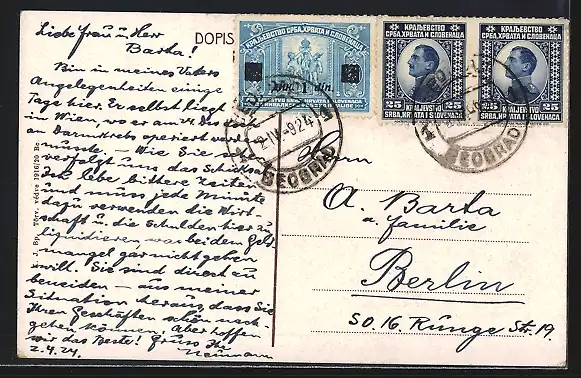 Liebe Frau u. Herr
Barta!
Bin in meines Vaters
Angelegenheiten einige
Tage hier. Er selbst liegt
in Wien, wo er am 24. Dez
an Darmkrebs operiert
wurde. — Wie Sie
verfolgt uns das Schicksal
Ich lebe bittere Zeiten
und muss jede Minute
dazu verwenden die Wirt-
schaft u. die Schulden hier zu
liquidieren was bei dem Geld-
mangel gar nicht gehen
will. Sie sind direkt zu
beneiden — aus meiner
Situation heraus, dass Sie
Ihren Geschäften schön nach-
gehen können. Aber hoffen
wir das Beste! Gruss Ihr
2.4.24. Neumann
DOPIS
КРАЉЕВСТВО СРБА, ХРВАТА И СЛОВЕНАЦА
1 din.
КРАЉЕВСТВО
СРБА, ХРВАТА И СЛОВЕНАЦА
25 KRALJEVSTVO 25
SRBA, HRVATA I SLOVENACA
КРАЉЕВСТВО
СРБА, ХРВАТА И СЛОВЕНАЦА
25 KRALJEVSTVO 25
SRBA, HRVATA I SLOVENACA
2 IV 924
BEOGRAD
BEOGRAD
Herrn
A. Barta
u. Familie
Berlin
SO. 16. Runge Str. 19.
védve 1916/20